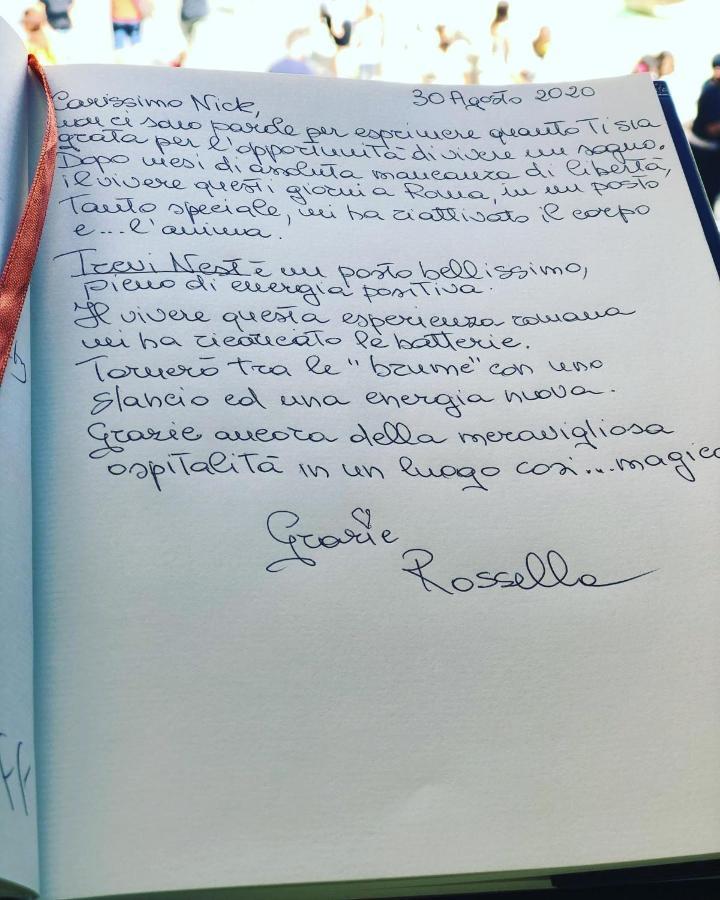 Carissimo Nick, 30 Agosto 2020
non ci sono parole per esprimere quanto Ti sia
grata per l'opportunità di vivere un sogno.
Dopo mesi di assoluta mancanza di libertà,
il vivere questi giorni a Roma, in un posto
Tanto speciale, mi ha riattivato il corpo
e...l'anima.
Trevi Nest è un posto bellissimo,
pieno di energia positiva.
Il vivere questa esperienza romana
mi ha ricaricato le batterie.
Tornerò tra le "brume" con uno
slancio ed una energia nuova.
Grazie ancora della meravigliosa
ospitalità in un luogo così...magico
Grazie
Rossella